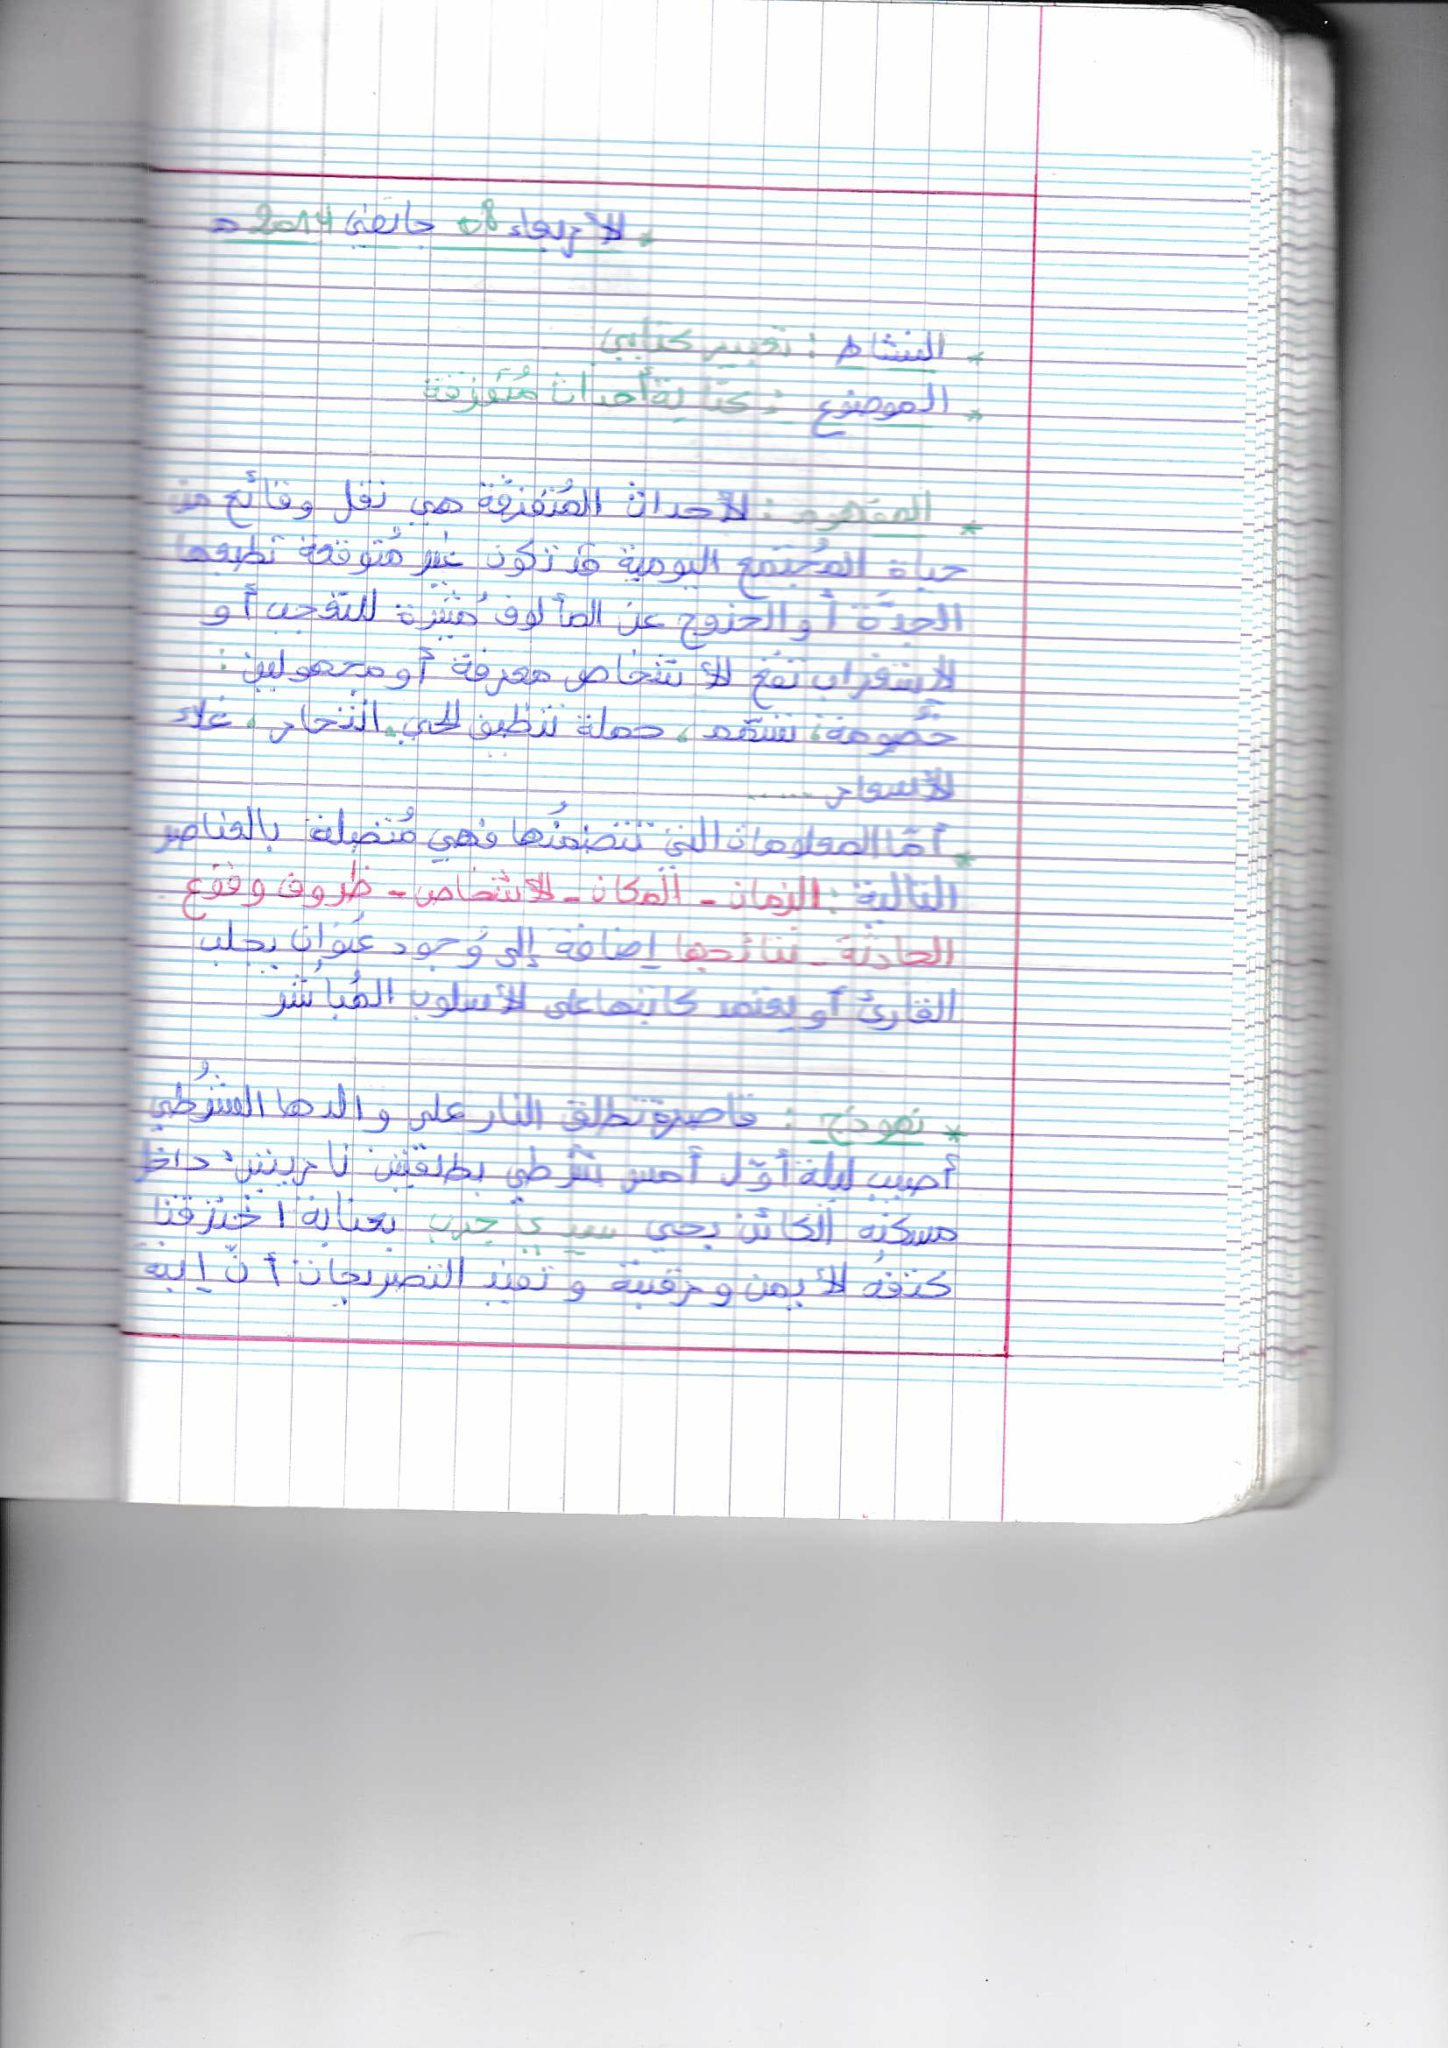 الأربعاء 08 جانفي 2014 م
* النشاط : تعبير كتابي
* الموضوع : كتابة أحداث مُتفرّقة
* المفهوم : الأحداث المُتفرّقة هي نقل وقائع من
حياة المُجتمع اليومية قد تكون غير مُتوقعة تطبعها
الجدّة أو الخروج عن المألوف مُثيرة للتعجب أو
الاستغراب تقع لأشخاص معرفة أو مجهولين :
خصومة، تسمّم، حملة تنظيف الحي، انتحار، غلاء
الأسعار ......
* أمّا المعلومات التي تتضمنُها فهي مُتصلة بالعناصر
التالية : الزمان - المكان - الأشخاص - ظروف وقوع
الحادثة - نتائجها إضافة إلى وُجود عنوان يجلب
القارئ أو يعتمد كاتبها على الأسلوب المُباشر
* نموذج : قاصرة تطلق النار على والدها الشُرطي
أصيب ليلة أوّل أمس شرطي بطلقتين ناريتين داخل
مسكنه الكائن بحي سيدي حرب بعنابة اخترقتا
كتفهُ الأيمن ورقبتة وتفيد التصريحات أنّ إبنة